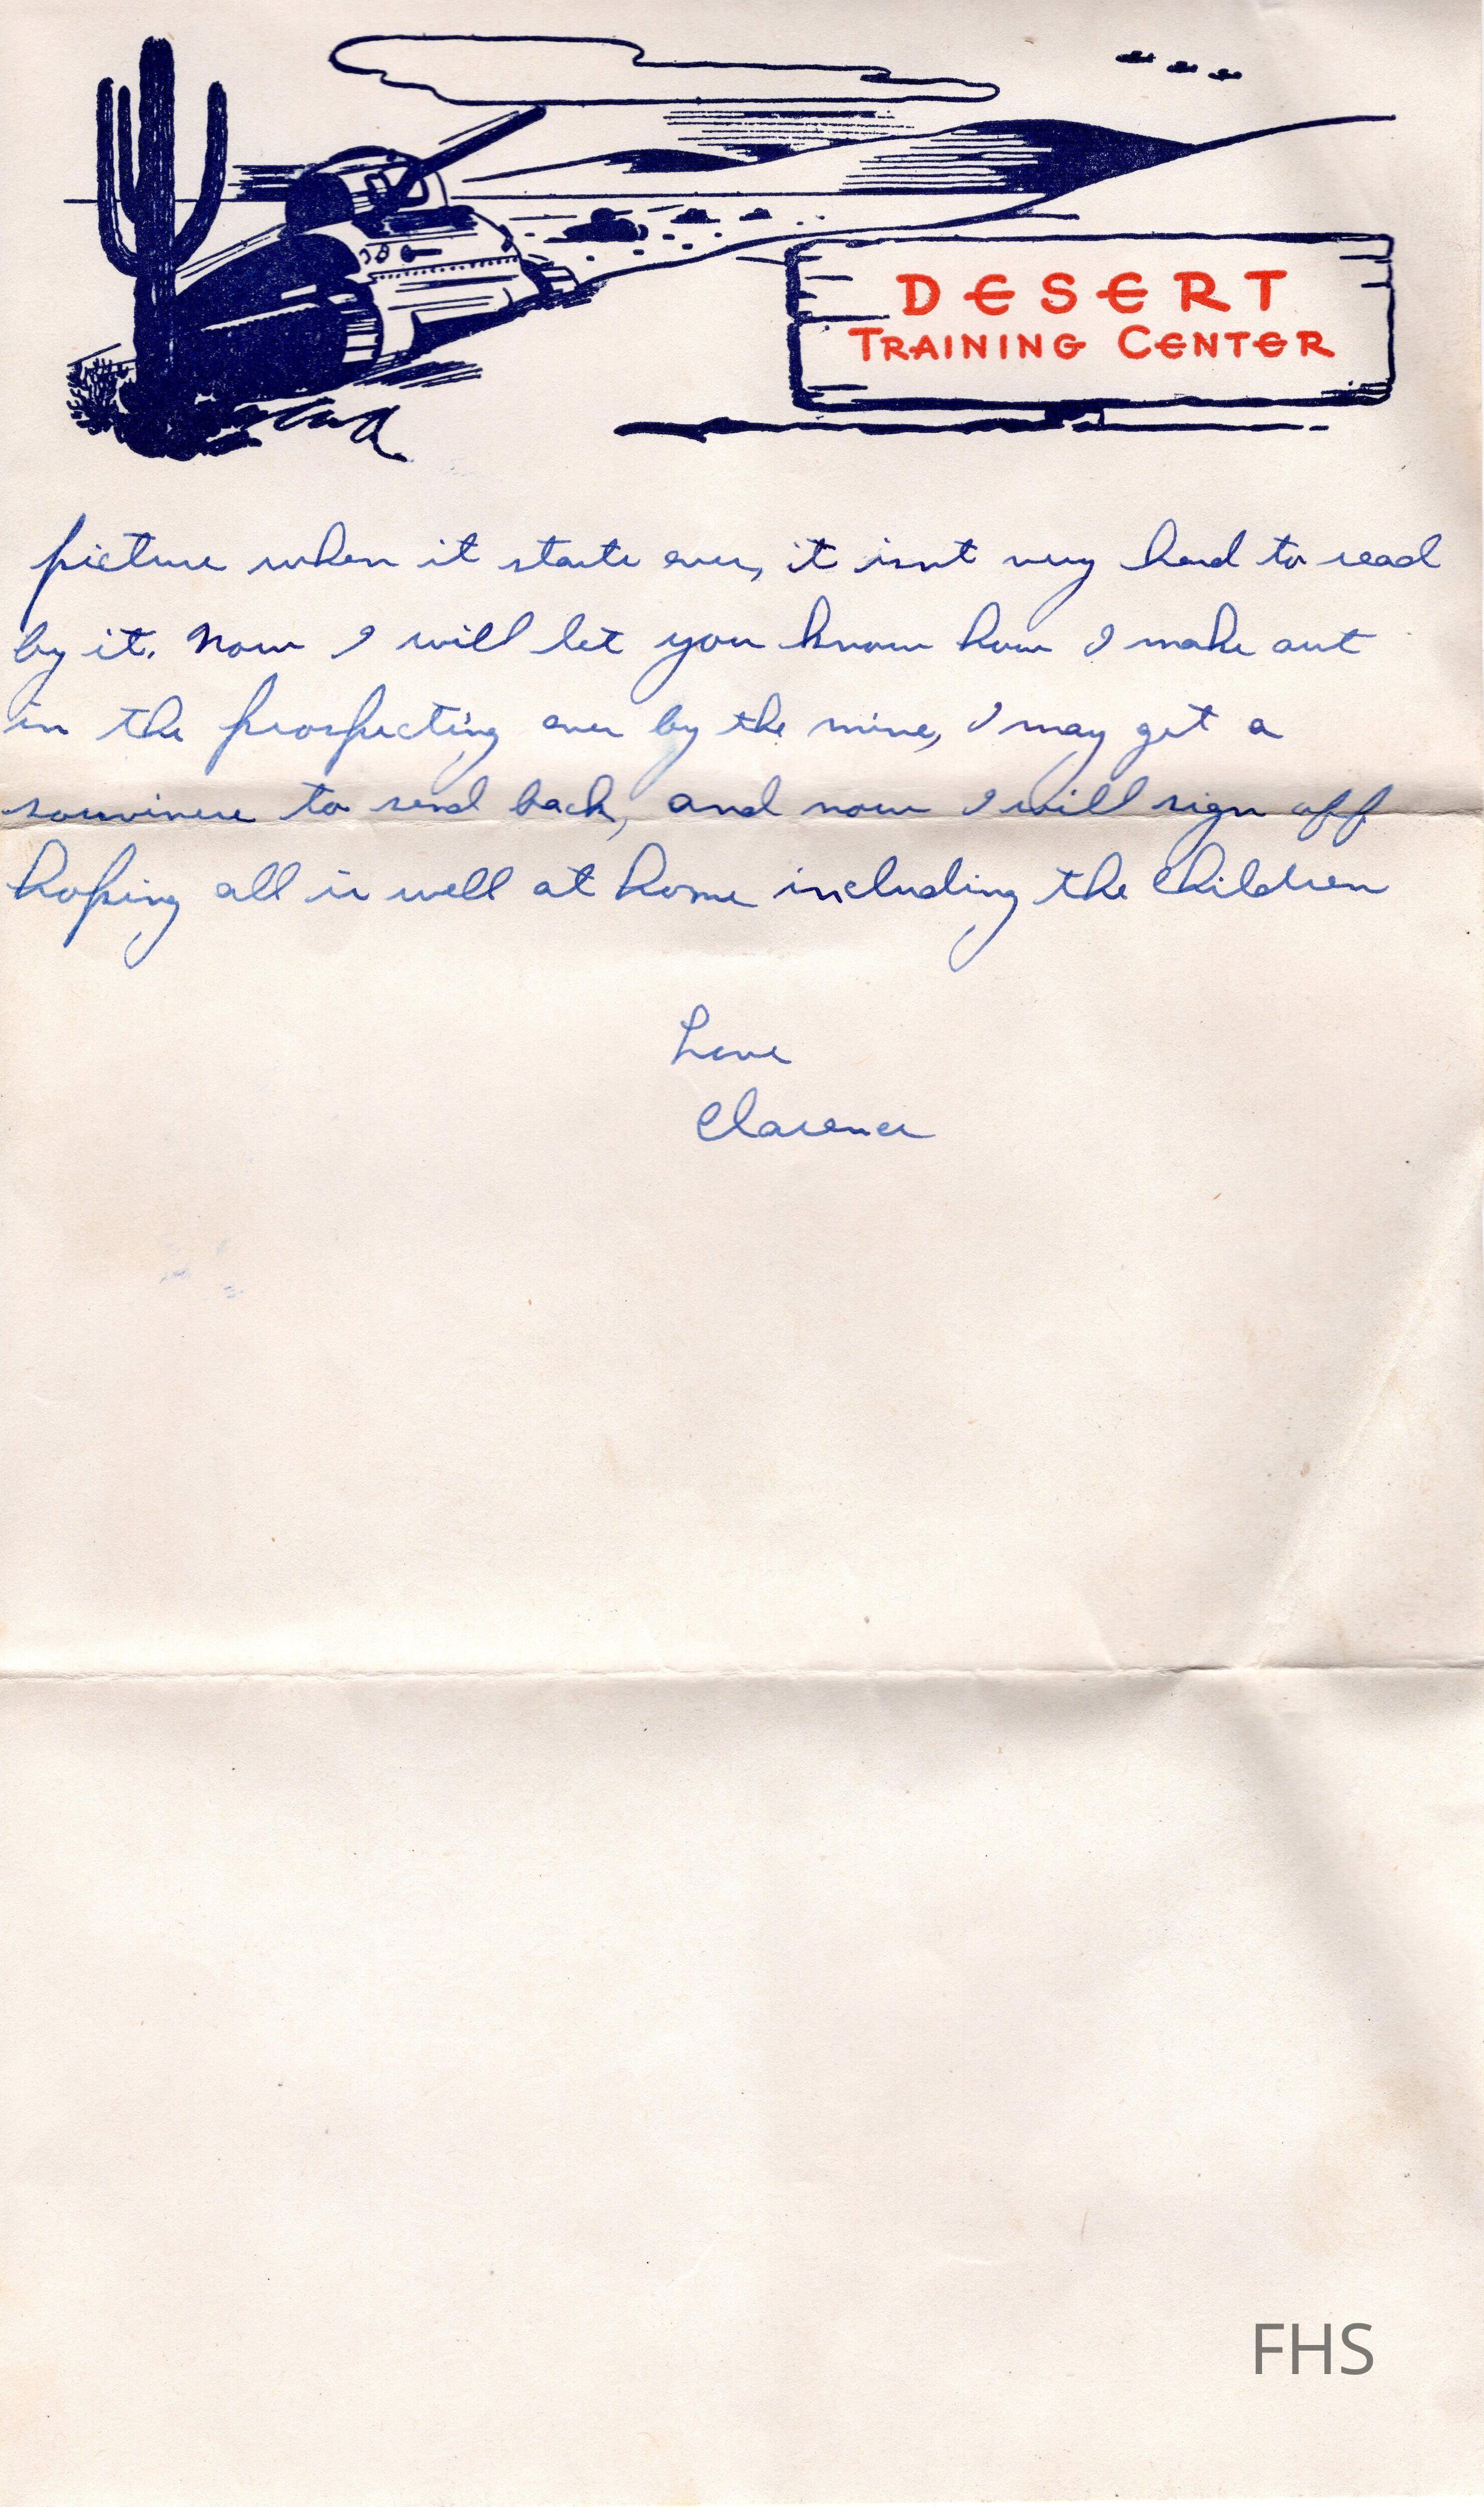 DESERT
TRAINING CENTER
picture when it starts over, it isnt very hard to read
by it. Now I will let you know how I make out
in the prospecting over by the mine, I may get a
souvinere to send back, and now I will sign off
hoping all is well at home including the Children
Love
Clarence
FHS